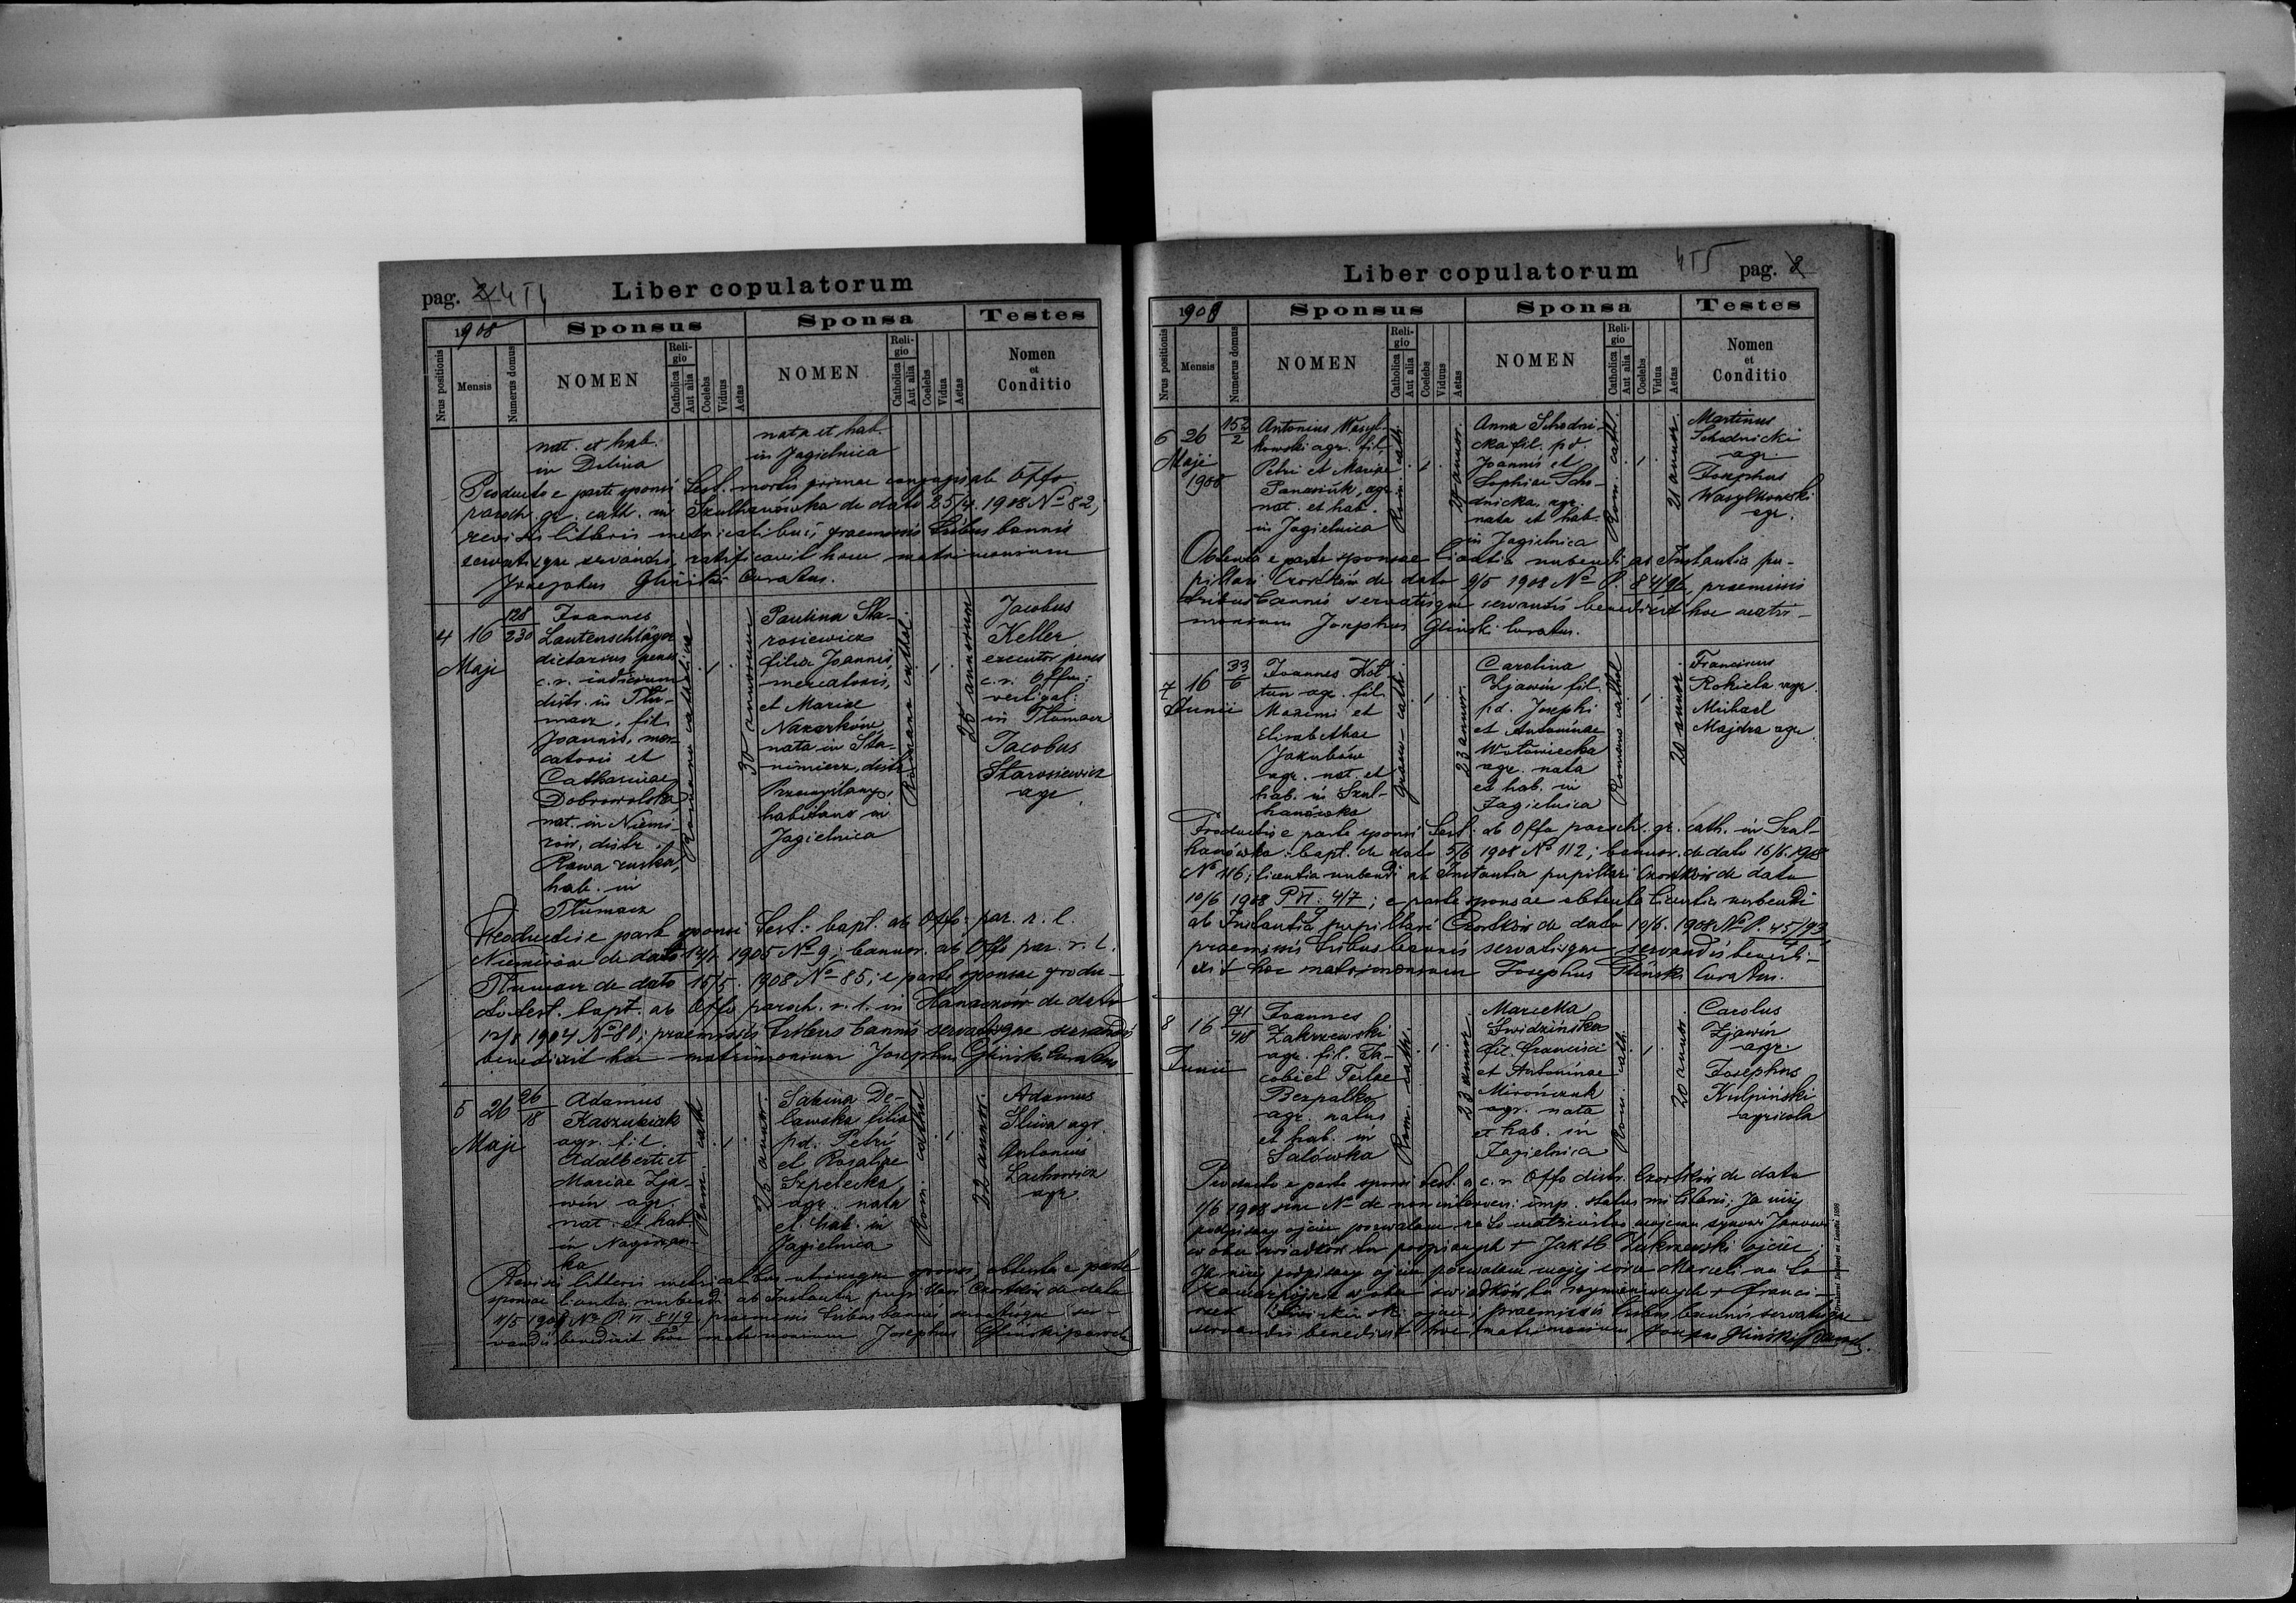 pag. 2 454
Liber copulatorum
1908
Sponsus
Sponsa
Testes
Nrus positionis
Mensis
Numerus domus
NOMEN
Religio
Catholica
Aut alia
Coelebs
Viduus
Aetas
NOMEN
Religio
Catholica
Aut alia
Coelebs
Vidua
Aetas
Nomen
et
Conditio
nat. et hab.
in
nata et hab.
in Jagielnica
Producto e parte sponsi test. mortis primae conjugis ab Offo
paroch. gr. cath. in Szulhanówka de dato 25/4. 1908 No 82,
revisis litteris metricalibus, praemissis tribus bannis
servatisque servandis, ratificavit hoc matrimonium
Josephus Gliński Curatus.
4
16
Maji
128
230
Joannes
Lautenschläger
dietarius penes
c. r. iudicium
distr. in Tłu-
macz, fil.
Joannis, mer-
catoris et
Catharinae
Dobrowolska
nat. in Niemi-
rów, distr.
Rawa ruska,
hab. in
Tłumacz
Romano catholica
1
30 annorum
Paulina Sta-
rosiewicz
filia Joannis
mercatoris,
et Mariae
Nazarków
nata in Sta-
nimierz, distr.
Przemyślany,
habitans in
Jagielnica
Romano cathol.
1
25 annorum
Jacobus
Keller
executor penes
c. r. Offm.
vectigal:
in Tłumacz
Jacobus
Starosiewicz
agr.
Productis e parte sponsi test: bapt. ab Offo par. r. l.
Niemirow de dato 14/7. 1905 No 9; bannor. ab Offo par. r. l.
Tłumacz de dato 15/5. 1908 No 85; e parte sponsae produ-
cto test. bapt. ab Offo paroch. r. l. in Hanaczów de dato
12/8 1904 No 80; praemissis tribus bannis servatisque servandis
benedixit hoc matrimonium Josephus Gliński Curatus
5
26
Maji
26
18
Adamus
Kaszubiak
agr. fil.
Adalberti et
Mariae Zja-
win agr.
nat. et hab.
in Nagórzan-
ka
Rom. cath
1
25 annor.
Sabina De-
lawska filia
pd. Petri
et Rosaliae
Szpetecka
agr. nata
et hab. in
Jagielnica
Rom. cathol
1
22 annor.
Adamus
Śliwa agr.
Antonius
Lachowicz
agr.
Revisis litteris metricalibus utriusque sponsi, obtenta e parte
sponsae licentia nubendi ab Instantia pupillari Czortków de dato
11/5 1908 No P. VI 84/9 praemissis tribus bannis servatisque ser-
vandis benedixit hoc matrimonium Josephus Gliński paroch
Liber copulatorum
455
pag. 8
1908
Sponsus
Sponsa
Testes
Nrus positionis
Mensis
Numerus domus
NOMEN
Religio
Catholica
Aut alia
Coelebs
Viduus
Aetas
NOMEN
Religio
Catholica
Aut alia
Coelebs
Vidua
Aetas
Nomen
et
Conditio
6
26
Maji
1908
152
2
Antonius Wasyl-
kowski agr. fil.
Petri et Mariae
Panasiuk, agr.
nat. et hab.
in Jagielnica
Rom. cath.
1
annor.
Anna Schodni-
cka fil. pd.
Joannis et
Sophiae Scho-
dnicka, agr.
nata et hab.
in Jagielnica
Rom. cath.
1
21 annor.
Martinus
Schodnicki
agr.
Josephus
Wasylkowski
agr.
Obtenta e parte sponsae licentia nubendi ab Instantia pu-
pillari Czortków de dato 9/5 1908 No P. 84/96, praemissis
tribus bannis servatisque servandis benedixit hoc matri-
monium Josephus Gliński Curatus.
7
16
Junii
33
6
Joannes Koł
tun agr. fil.
Maximi et
Elisabethae
Jakubów
agr. nat. et
hab. in Szul-
hanówka
Graeco-cath.
1
23 annor.
Carolina
Zjawin fil.
pd. Josephi
et Antoninae
Wołowiecka
agr. nata
et hab. in
Jagielnica
Romano cathol
1
20 annor.
Franciscus
Rokieta agr.
Michael
Majdra agr.
Productis e parte sponsi test. ab Offo paroch. gr. cath. in Szul-
hanówka: bapt. de dato 5/6 1908 No 112; bannor. de dato 16/6. 1908
No 116; licentia nubendi ab Instantia pupillari Czortków de dato
10/6 1908 P VI. 4/7; e parte sponsae obtenta licentia nubendi
9
ab Instantia pupillari Czortków de dato 10/6. 1908 No P. 45/93
praemissis tribus bannis servatisque servandis bened-
ixit hoc matrimonium Josephus Gliński Curatus.
8
16
Junii
71
418
Joannes
Zakrzewski
agr. fil. Ja-
cobi et Teclae
Bezpalko
agr. natus
et hab. in
Sałówka
Rom. cath.
1
23 annor.
Marcella
Świdzińska
fil. Francisci
et Antoninae
Mirończuk
agr. nata
et hab. in
Jagielnica
Rom. cath.
1
20 annor.
Carolus
Zjawin
agr.
Josephus
Kulpiński
agricola
Producto e parte sponsi test. a c. r. Offo distr. Czortków de dato
1/6 1908 sine No de non interven. imp. status militaris; Ja niżej
podpisany ojciec pozwalam na to małżeństwo mojemu synowi Janowi
w obec świadków tu podpisanych + Jakób Zakrzewski ojciec;
Ja niżej podpisany ojciec pozwalam mojej córce Marceli na to
w obec świadków tu wymienionych + Franci-
szek ojciec; praemissis tribus bannis servatisque
servandis benedixit hoc matrimonium Josephus Gliński paroch.